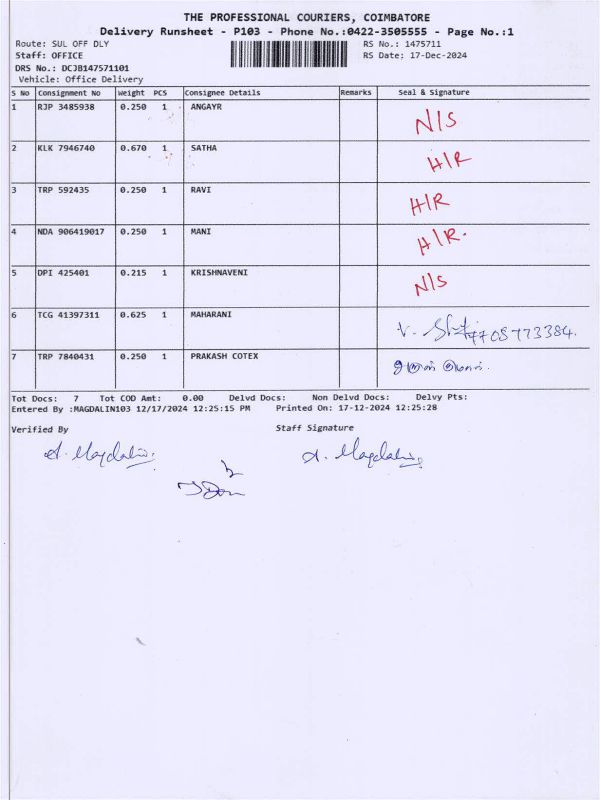 THE PROFESSIONAL COURIERS, COIMBATORE
Delivery Runsheet - P103 - Phone No.:0422-3505555 - Page No.:1
Route: SUL OFF DLY RS No.: 1475711
Staff: OFFICE RS Date: 17-Dec-2024
DRS No.: DCJB147571101
Vehicle: Office Delivery
S No Consignment No Weight PCS Consignee Details Remarks Seal & Signature
1 RJP 3485938 0.250 1 ANGAYR N/S
2 KLK 7946740 0.670 1 SATHA H/R
3 TRP 592435 0.250 1 RAVI H/R
4 NDA 906419017 0.250 1 MANI H/R.
5 DPI 425401 0.215 1 KRISHNAVENI N/S
6 TCG 41397311 0.625 1 MAHARANI V. 7708773384.
7 TRP 7840431 0.250 1 PRAKASH COTEX
Tot Docs: 7 Tot COD Amt: 0.00 Delvd Docs: Non Delvd Docs: Delvy Pts:
Entered By :MAGDALIN103 12/17/2024 12:25:15 PM Printed On: 17-12-2024 12:25:28
Verified By Staff Signature
A. Magdalin. A. Magdalin.